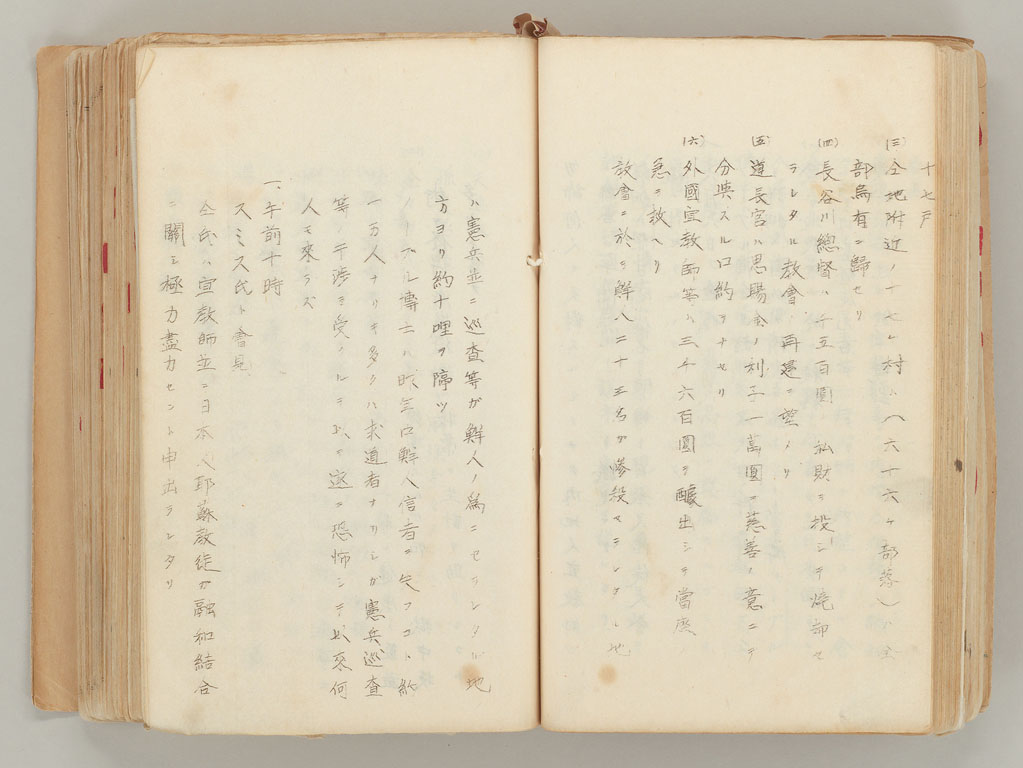 十七戸
(三)仝地附近ノ十七ヶ村ハ(六十六ヶ部落)ハ全
部烏有ニ歸セリ
(四)長谷川總督ハ千五百圓 私財ヲ投シテ焼却セ
ラレタル教會ノ再建ニ望メリ
(五)道長官ハ恩賜金ノ利子一萬圓ヲ慈善ノ意ニテ
分與スル口約ヲナセリ
(六)外國宣教師等ハ三千六百圓ヲ醵出シテ當座ノ
急ニ救ヘリ
教會ニ於テ鮮人二十三名ガ惨殺セラレタル地
ハ憲兵並ニ巡査等ガ鮮人ノ為ニセリレタル地
方ヨリ約十哩ヲ隔ツ
ノーブル博士ハ昨年ロ鮮人信者ヲ失フコト約
一万人ナリキ多クハ求道者ナリシガ憲兵巡査
等ノ干渉ヲ受ノルヲ以テ遂ニ恐怖シテ以來何
人モ來ラズ
一、午前十時
スミス氏ト會見
仝氏ハ宣教師並ニ日本人耶蘇教徒ガ融和結合
ニ關シ極力盡力セント申出ラレタリ